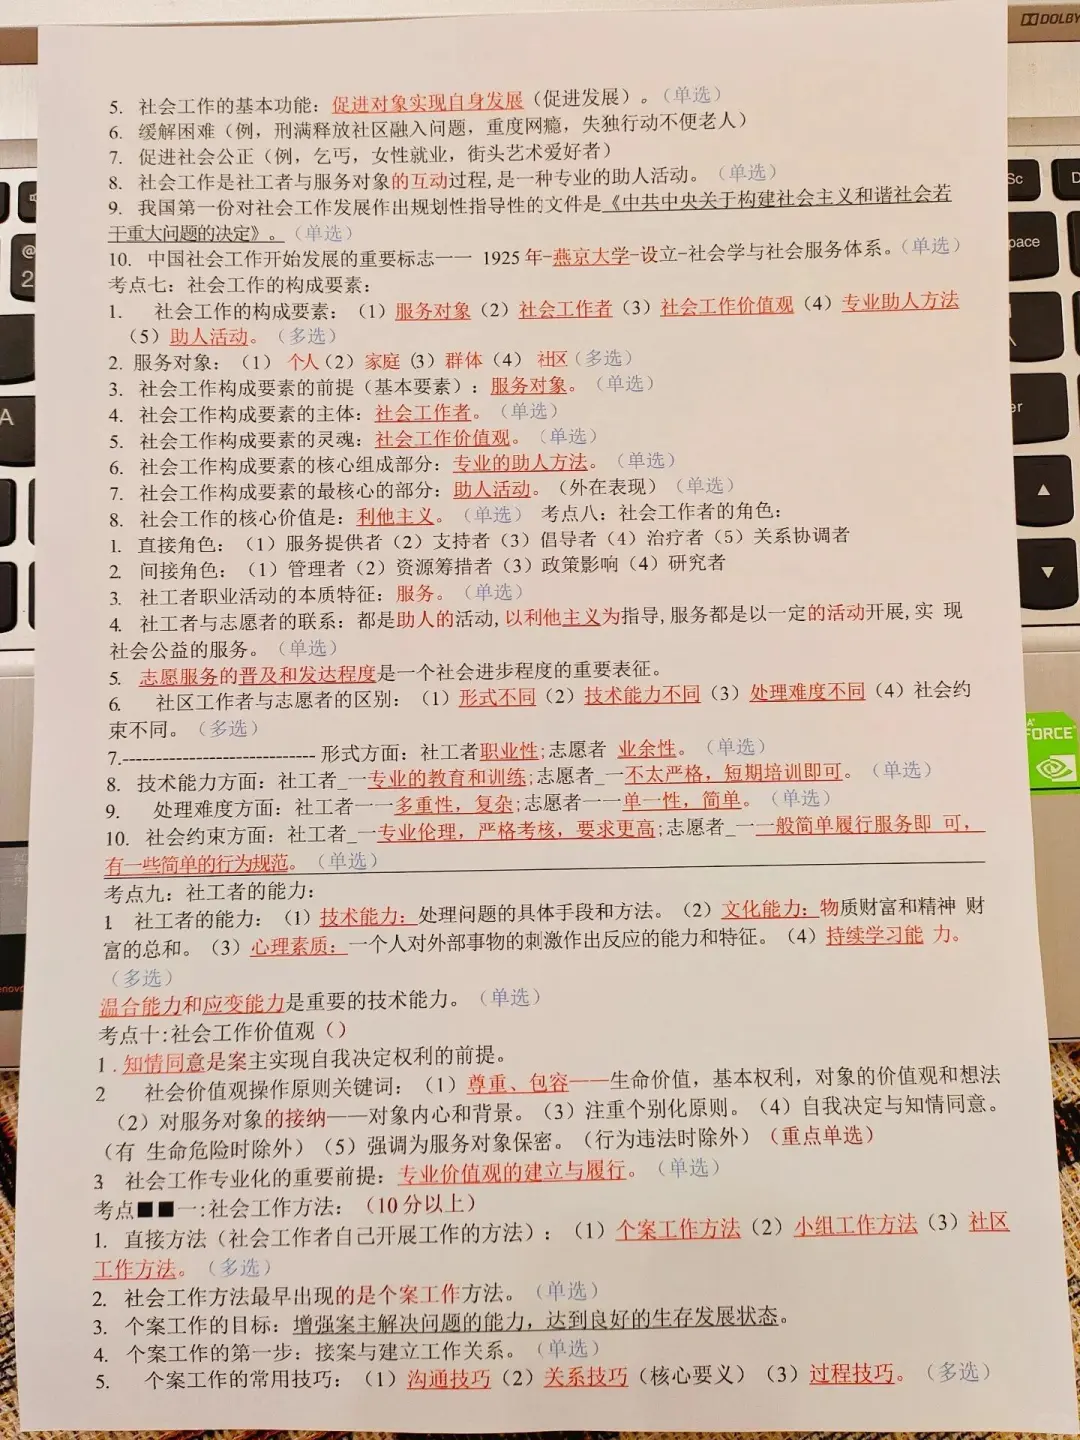 5. 社会工作的基本功能：促进对象实现自身发展（促进发展）。（单选）
6. 缓解困难（例，刑满释放社区融入问题，重度网瘾，失独行动不便老人）
7. 促进社会公正（例，乞丐，女性就业，街头艺术爱好者）
8. 社会工作是社工者与服务对象的互动过程,是一种专业的助人活动。（单选）
9. 我国第一份对社会工作发展作出规划性指导性的文件是《中共中央关于构建社会主义和谐社会若
干重大问题的决定》。（单选）
10. 中国社会工作开始发展的重要标志一一 1925年-燕京大学-设立-社会学与社会服务体系。（单选）
考点七：社会工作的构成要素：
1. 社会工作的构成要素：（1）服务对象（2）社会工作者（3）社会工作价值观（4）专业助人方法
（5）助人活动。（多选）
2. 服务对象：（1） 个人（2） 家庭（3） 群体（4） 社区（多选）
3. 社会工作构成要素的前提（基本要素）：服务对象。（单选）
4. 社会工作构成要素的主体：社会工作者。（单选）
5. 社会工作构成要素的灵魂：社会工作价值观。（单选）
6. 社会工作构成要素的核心组成部分：专业的助人方法。（单选）
7. 社会工作构成要素的最核心的部分：助人活动。（外在表现）（单选）
8. 社会工作的核心价值是：利他主义。（单选） 考点八：社会工作者的角色：
1. 直接角色：（1）服务提供者（2）支持者（3）倡导者（4）治疗者（5）关系协调者
2. 间接角色：（1）管理者（2）资源筹措者（3）政策影响（4）研究者
3. 社工者职业活动的本质特征：服务。（单选）
4. 社工者与志愿者的联系：都是助人的活动,以利他主义为指导,服务都是以一定的活动开展,实 现
社会公益的服务。（单选）
5. 志愿服务的普及和发达程度是一个社会进步程度的重要表征。
6. 社区工作者与志愿者的区别：（1）形式不同（2）技术能力不同（3）处理难度不同（4）社会约
束不同。（多选）
7.----------------------------- 形式方面：社工者职业性;志愿者 业余性。（单选）
8. 技术能力方面：社工者_一专业的教育和训练;志愿者_一不太严格，短期培训即可。（单选）
9. 处理难度方面：社工者一一多重性，复杂;志愿者一一单一性，简单。（单选）
10. 社会约束方面：社工者_一专业伦理，严格考核，要求更高;志愿者_一一般简单履行服务即 可，
有一些简单的行为规范。（单选）
考点九：社工者的能力：
1 社工者的能力：（1）技术能力：处理问题的具体手段和方法。（2）文化能力：物质财富和精神 财
富的总和。（3）心理素质：一个人对外部事物的刺激作出反应的能力和特征。（4）持续学习能 力。
（多选）
温合能力和应变能力是重要的技术能力。（单选）
考点十:社会工作价值观（）
1 . 知情同意是案主实现自我决定权利的前提。
2 社会价值观操作原则关键词：（1）尊重、包容——生命价值，基本权利，对象的价值观和想法
（2）对服务对象的接纳——对象内心和背景。（3）注重个别化原则。（4）自我决定与知情同意。
（有 生命危险时除外）（5）强调为服务对象保密。（行为违法时除外）（重点单选）
3 社会工作专业化的重要前提：专业价值观的建立与履行。（单选）
考点■■一:社会工作方法：（10分以上）
1. 直接方法（社会工作者自己开展工作的方法）：（1）个案工作方法（2）小组工作方法（3）社区
工作方法。（多选）
2. 社会工作方法最早出现的是个案工作方法。（单选）
3. 个案工作的目标：增强案主解决问题的能力，达到良好的生存发展状态。
4. 个案工作的第一步：接案与建立工作关系。（单选）
5. 个案工作的常用技巧：（1）沟通技巧（2）关系技巧（核心要义）（3）过程技巧。（多选）
DOLBY
FORCE